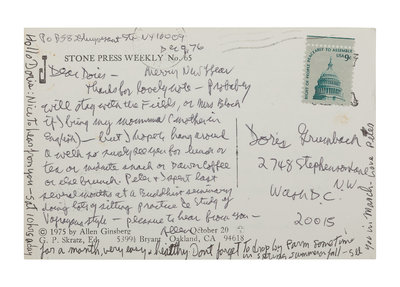 PO Box 582 Stuyvesant Sta NY 10009
Dec 9, 76
STONE PRESS WEEKLY No. 65
Dear Doris — Merry New Year
Thanks for lovely note — Probably
will stay with the Fields, or Mrs Black
if I bring my momma (mother in
English) — but I hope to hang around
a week so surely see you for lunch or
tea or midnite snack or Dawn Coffee
or else brunch. Peter & I spent last
several months at a Buddhist seminary
doing lots of sitting practice & study of
Vajrayana style — pleasure to hear from you —
Allen
© 1975 by Allen Ginsberg October 20
G. P. Skratz, Ed. 5399J Bryant Oakland, CA 94618
for a month very easy & healthy Don't forget to drop by Farm sometime
in spring summer fall — see
you in March. Love Peter
Hello Doris: Nice to hear from you —
9¢
Doris Grumbach
2748 Stephenson Lane
N.W.
Wash D.C.
20015